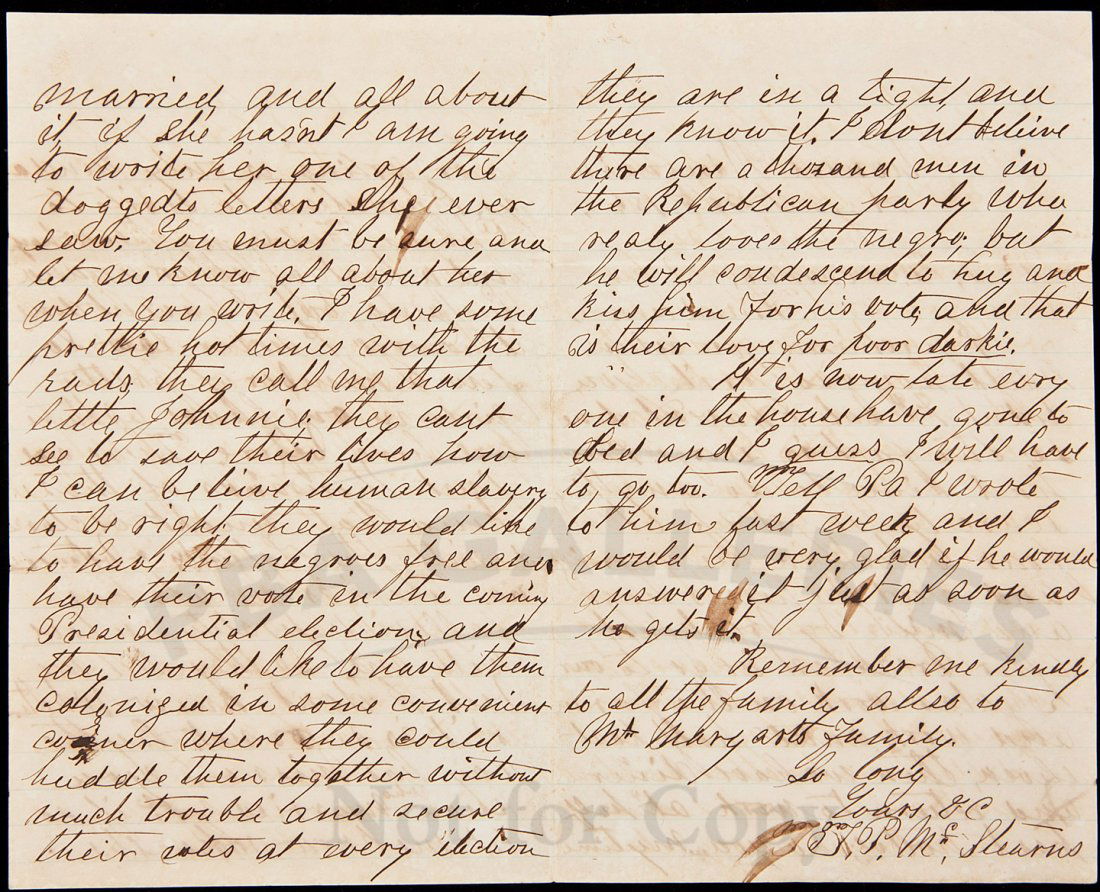 married, and all about
it, if she hasn't I am going
to write her one of the
doggedts letters she ever
saw. You must be sure and
let me know all about her
when you write. I have some
prettie hot times with the
rads, they call me that
little Johnnie, they cant
see to save their lives how
I can beleive human slavery
to be right they would like
to have the negroes free and
have their vote in the coming
Presidential election, and
they would like to have them
colonized in some convenient
corner where they could
huddle them together without
much trouble and secure
their votes at every election
they are in a tight and
they know it. I dont beleive
there are a thozand men in
the Republican party who
realy loves the negro, but
he will condescend to hug and
kiss him for his vote, and that
is their love for poor darkie.
It is now late evry
one in the house have gone to
bed and I guess I will have
to, go too. Tell Pa I wrote
to him last week and I
would be very glad if he would
answered it just as soon as
he gets it.
Remember me kindly
to all the family allso to
Mr Margarts Family.
So long
Yours &C
T. P. Mc. Stearns
PBA GALLERIES
Not for Copy